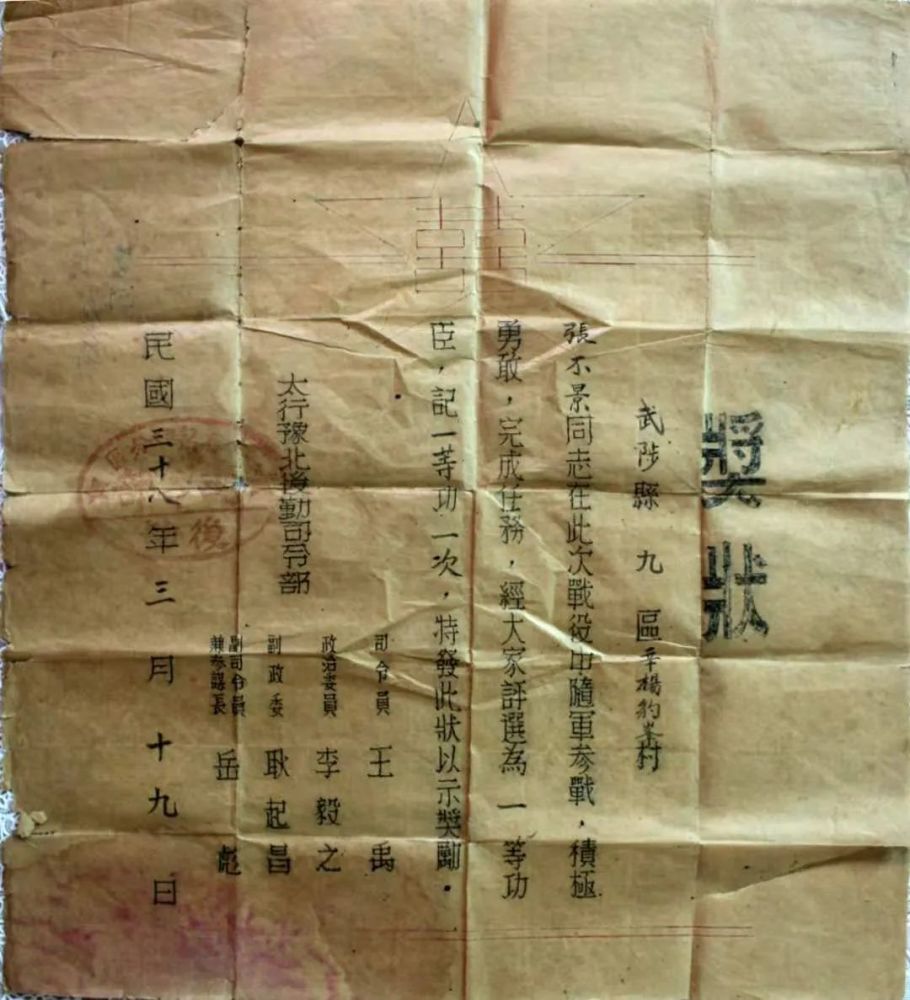 獎狀
武陟縣 九 區
張不景同志在此次戰役中隨軍参戰，積極
勇敢，完成任務，經大家評選為 一 等功
臣，記一等功一次，特發此狀以示獎勵。
司令員 王禹
政治委員 李毅之
副政委 耿起昌
副司令員兼参謀長 岳彪
太行豫北後勤司令部
民國三十八年三月十九日